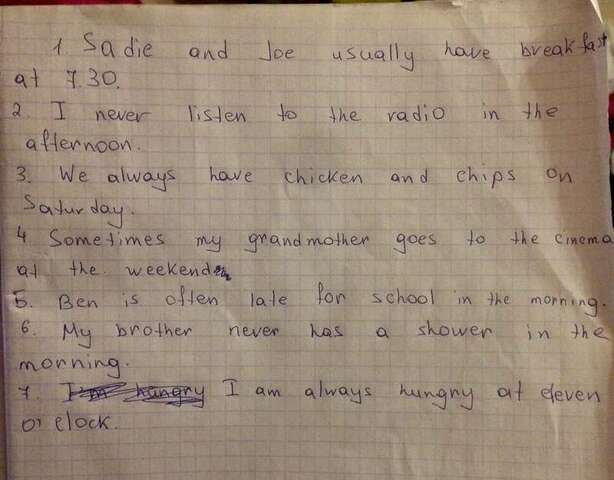 1. Sadie and Joe usually have breakfast
at 7.30.
2. I never listen to the radio in the
afternoon.
3. We always have chicken and chips on
Saturday.
4 Sometimes my grandmother goes to the cinema
at the weekend
5. Ben is often late for school in the morning.
6. My brother never has a shower in the
morning.
7. I'm hungry I am always hungry at eleven
o'clock.